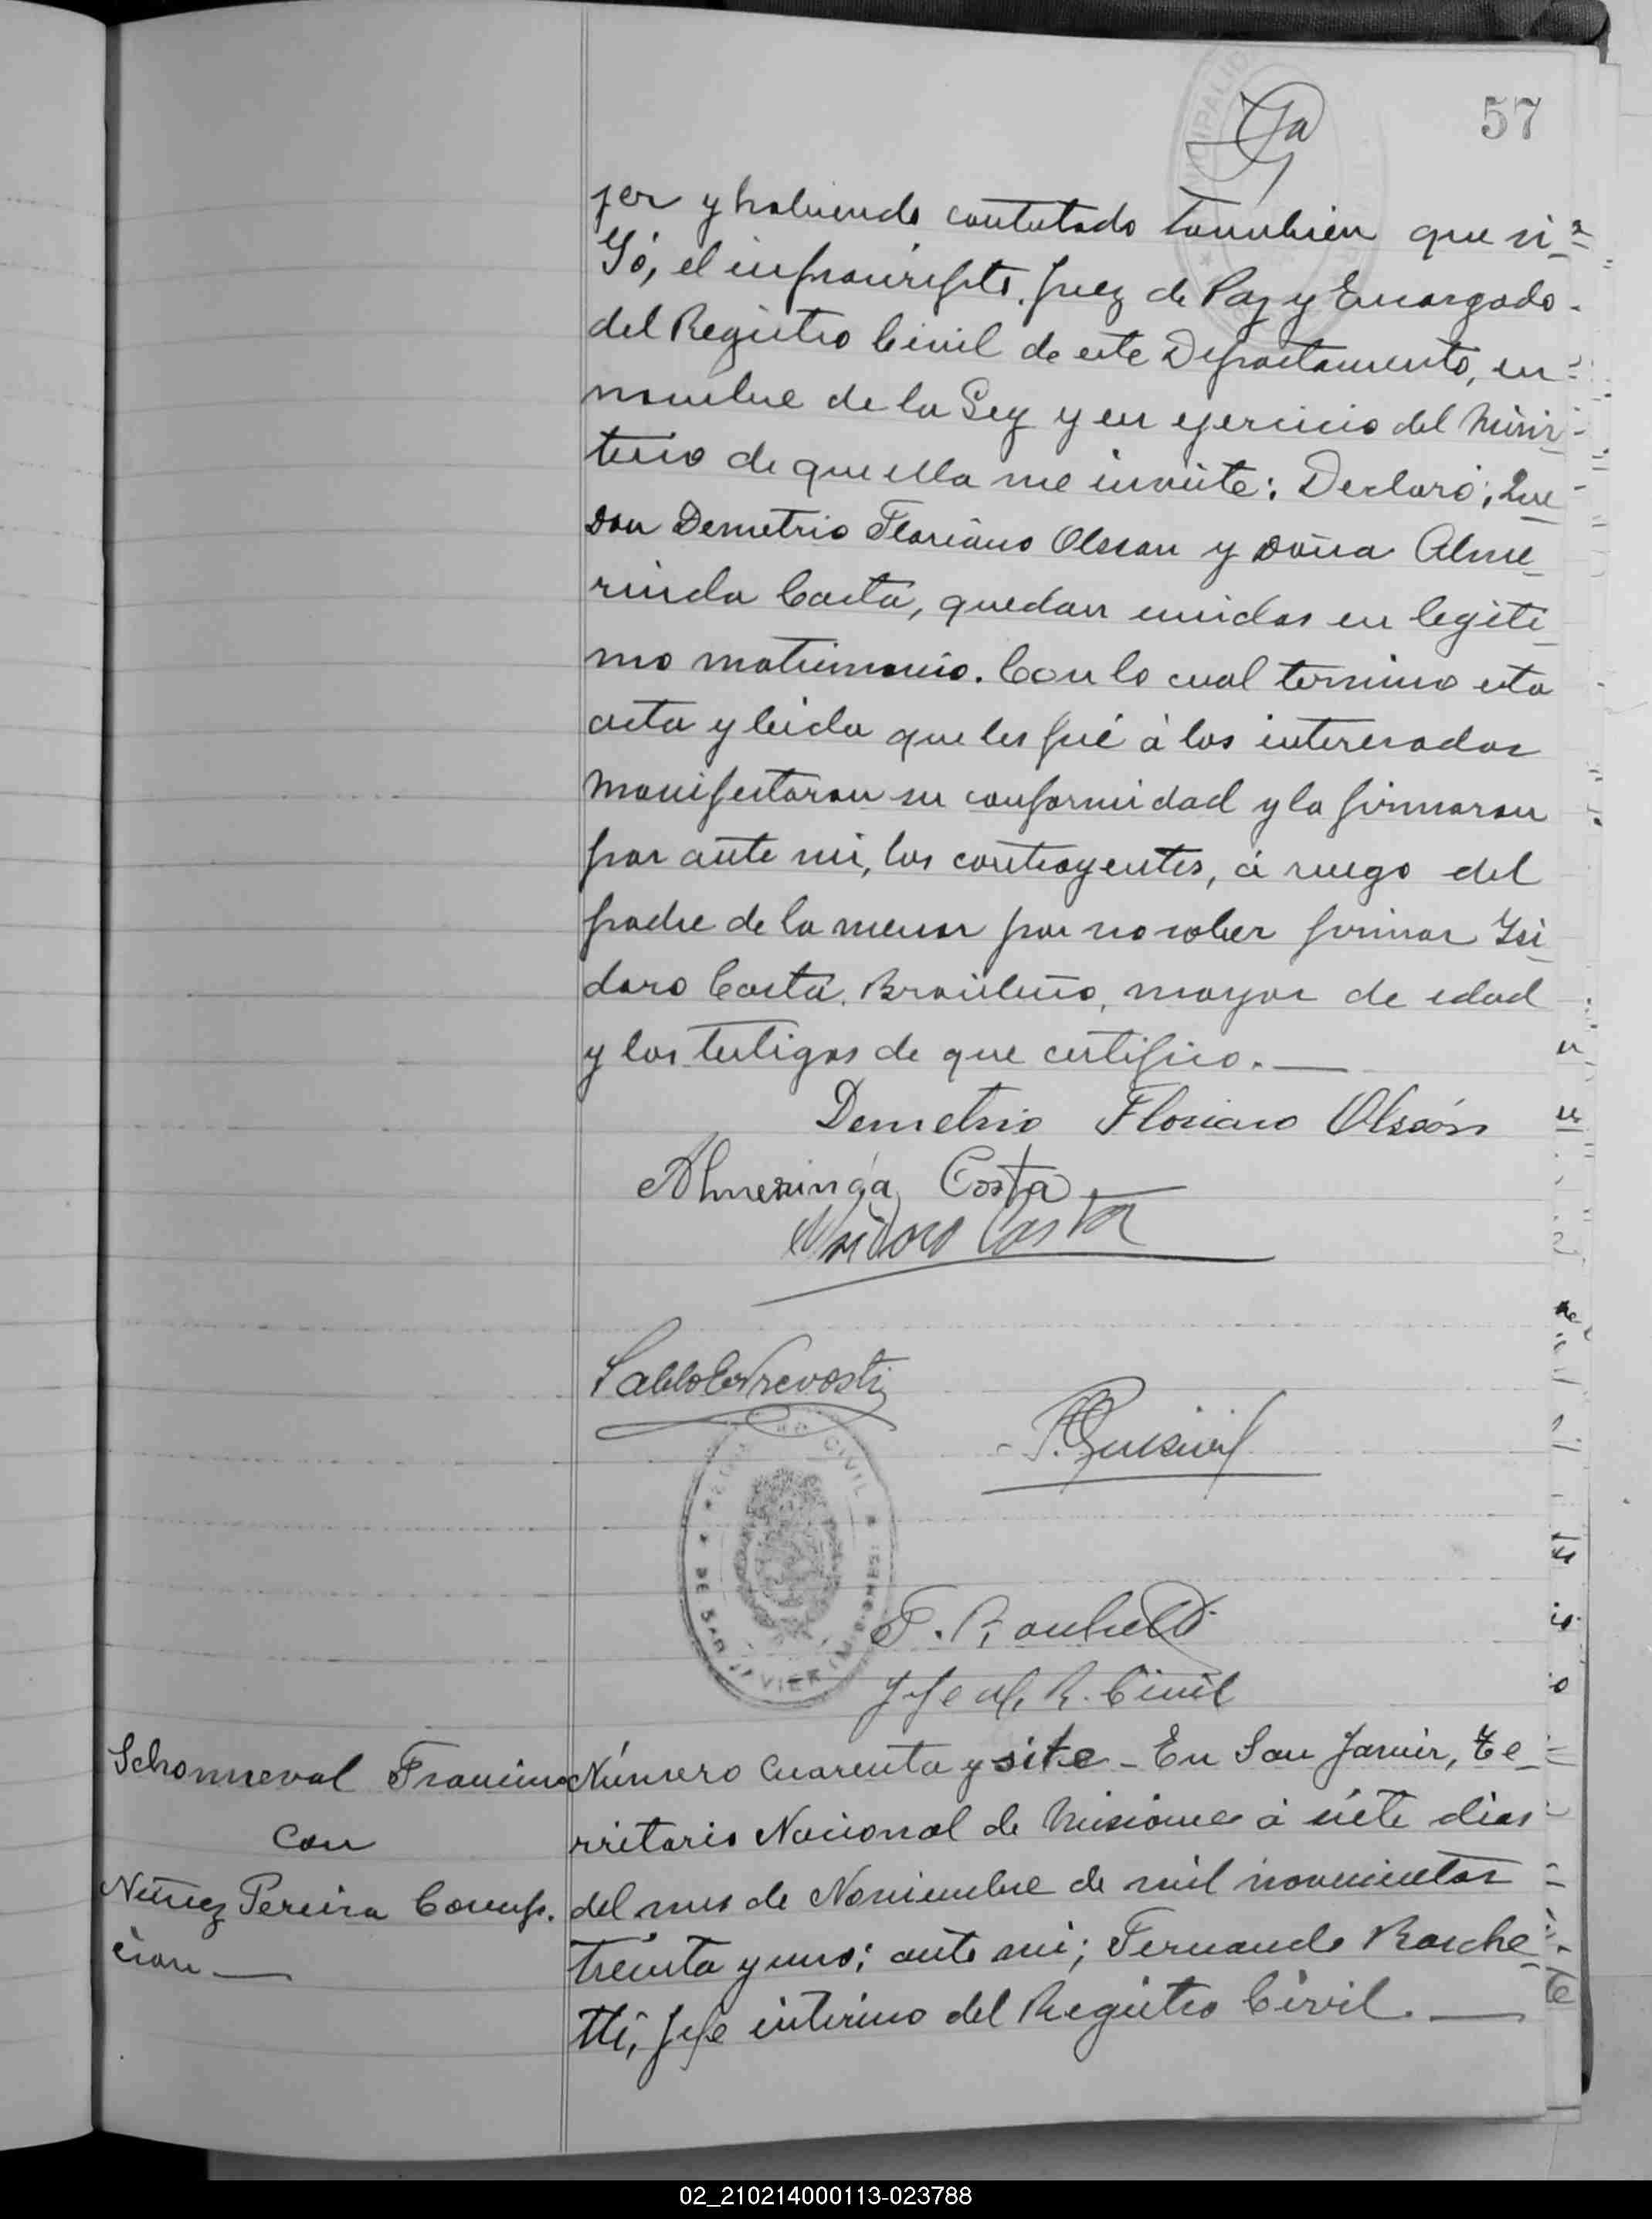 57
jer y habiendo contestado tambien que si=
Yó, el infrascripto Juez de Paz y Encargado
del Registro Civil de este Departamento, en
nombre de la Ley y en ejercicio del Minis-
terio de que ella me inviste: Declaro; Que
Don Demetrio Floriano Olsson y Doña Alme_
rinda Costa, quedan unidos en legiti_
mo matrimonio. Con lo cual termino esta
acta y leida que les fué á los interesados
manifestaron su conformidad y la firmaron
por ante mi, los contrayentes, á ruego del
padre de la menor por no saber firmar Isi_
doro Costa, Brasileño, mayor de edad
y los testigos de que certifico.—
Demetrio Floriano Olssón
Almerinda Costa
Isidoro Costa
Pablo E. Prevosti
REGISTRO CIVIL
DE SAN JAVIER (MISIONES)
F. Raschetti
Jefe del R. Civil
Schonneval Francisco
con
Nuñez Pereira Concep.
cion —
Número cuarenta y siete - En San Javier, Te_
rritorio Nacional de Misiones á siete dias
del mes de Noviembre de mil novecientos
treinta y uno; ante mi; Fernando Rasche_
tti, Jefe interino del Registro Civil. —
02_210214000113-023788